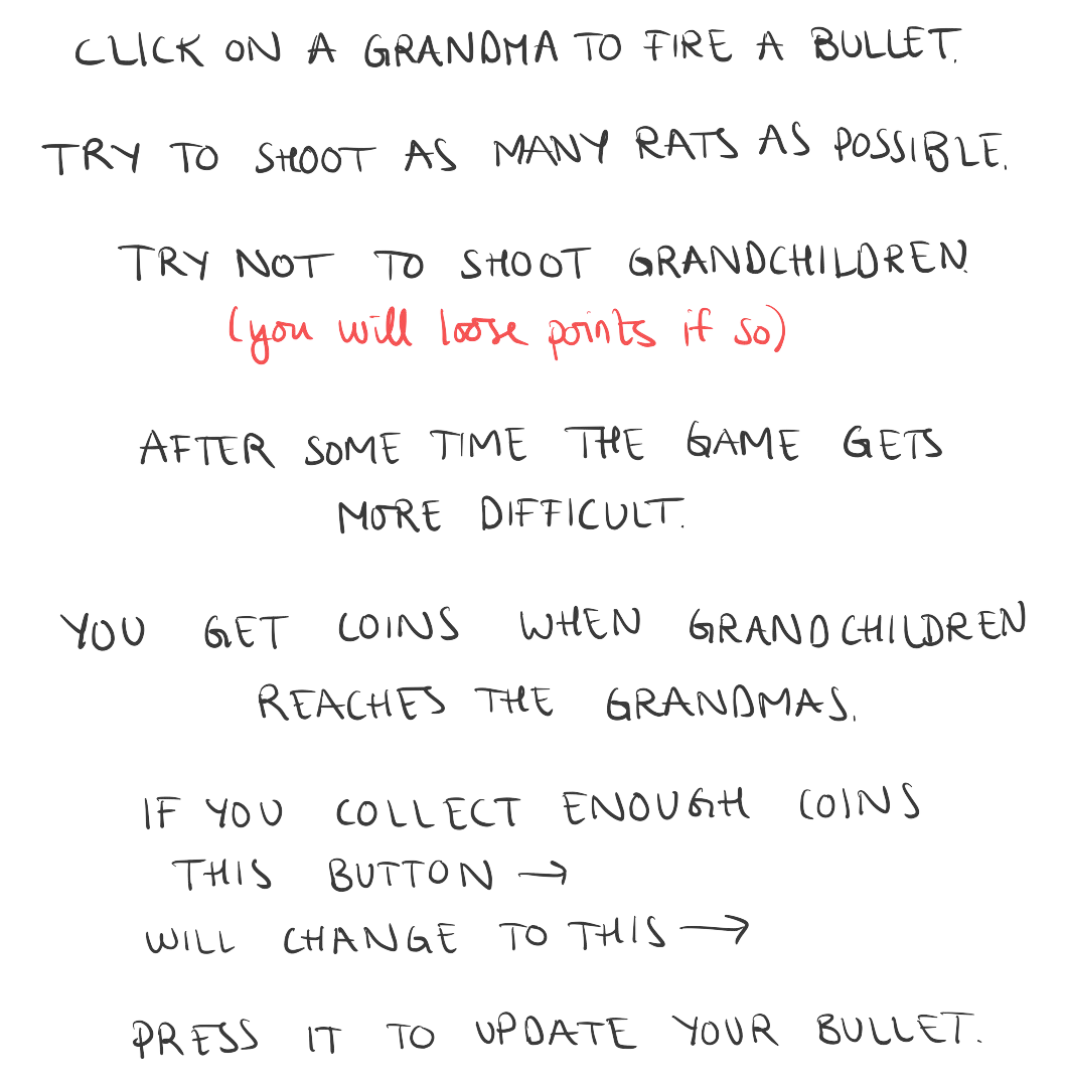 CLICK ON A GRANDMA TO FIRE A BULLET.
TRY TO SHOOT AS MANY RATS AS POSSIBLE.
TRY NOT TO SHOOT GRANDCHILDREN.
(you will loose points if so)
AFTER SOME TIME THE GAME GETS
MORE DIFFICULT.
YOU GET COINS WHEN GRANDCHILDREN
REACHES THE GRANDMAS.
IF YOU COLLECT ENOUGH COINS
THIS BUTTON →
WILL CHANGE TO THIS →
PRESS IT TO UPDATE YOUR BULLET.